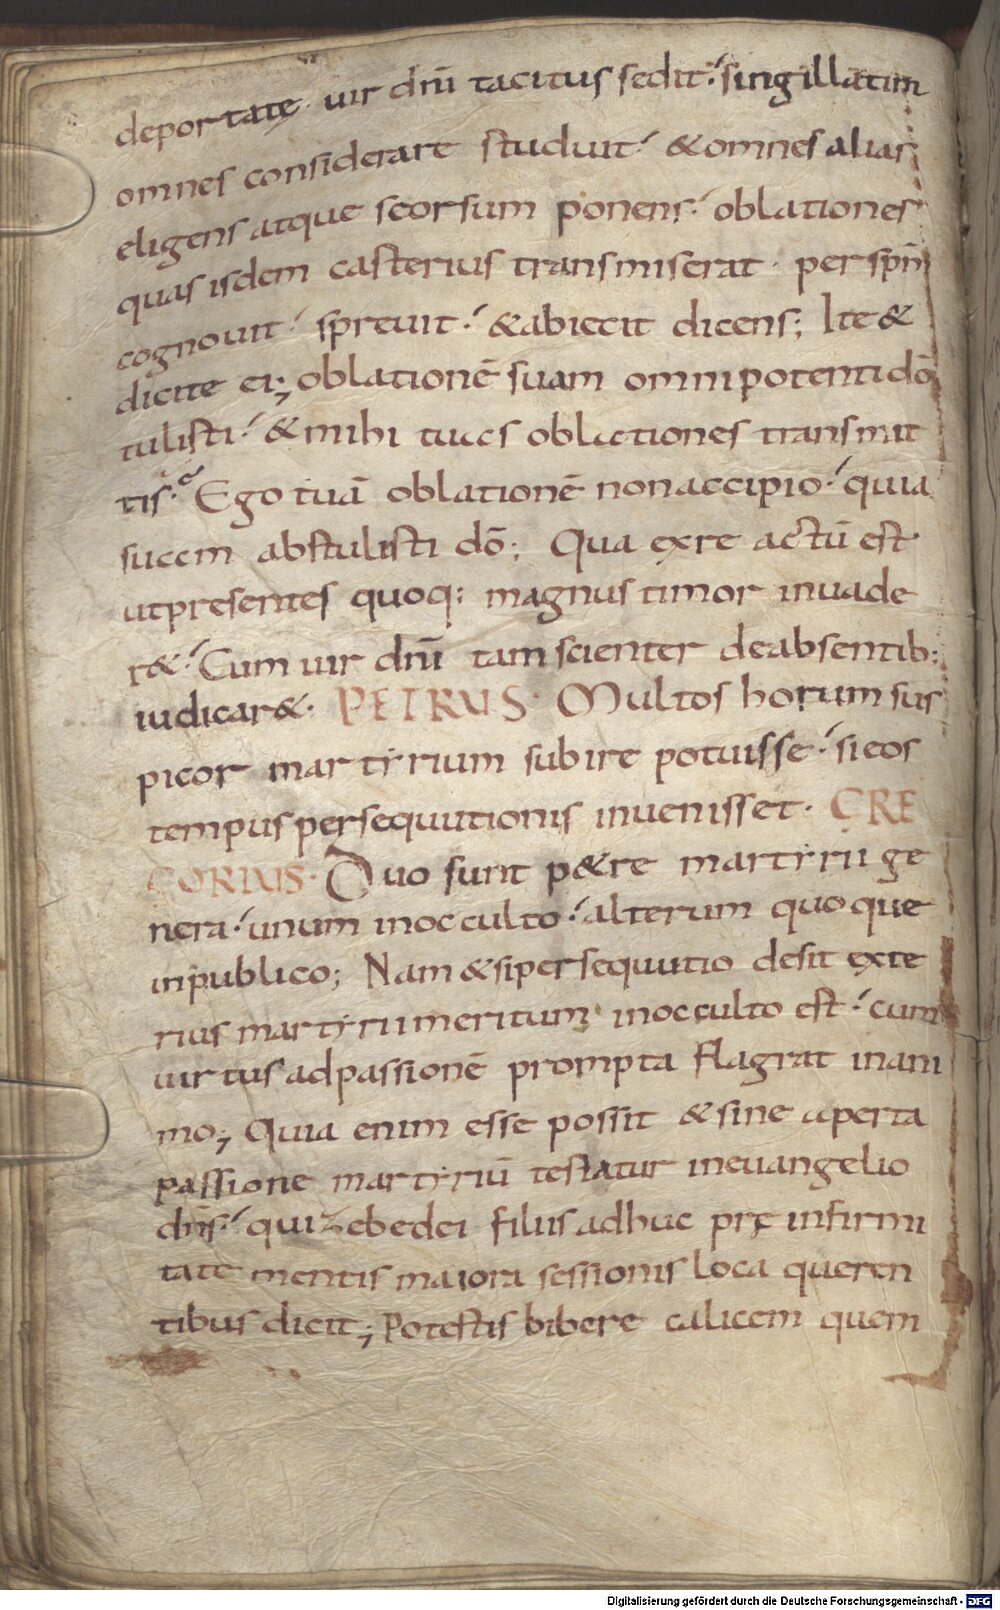 deportate · uir dnī tacitus sedit · singillatim
omnes considerare studuit · & omnes alias
eligens atque seorsum ponens · oblationes
quas isdem casterius transmiserat · per spm̄
cognouit · spreuit · & abiecit dicens; Ite &
dicite ei; oblationē suam omnipotenti dō
tulisti · & mihi tuas oblationes transmit
tis · Ego tuā oblationē non accipio · quia
suam abstulisti dō; Qua ex re actū est
ut presentes quoq: magnus timor inuade
r& · Cum uir dnī tam scienter de absentib:
iudicar& · PETRUS · Multos horum sus
picor martyrium subire potuisse · si eos
tempus persequutionis inuenisset · GRE
GORIUS · Duo sunt p&re martyrii ge
nera · unum in occulto · alterum quoque
in publico; Nam & si persequutio desit exte
rius martyrii meritum in occulto est · cum
uirtus ad passionē prompta flagrat in ani
mo; Quia enim esse possit & sine aperta
passione martyriū testatur in euangelio
dn̄s · qui zebedei filiis adhuc prę infirmi
tate mentis maiora sessionis loca queren
tibus dicit; Potestis bibere calicem quem
Digitalisierung gefördert durch die Deutsche Forschungsgemeinschaft - DFG